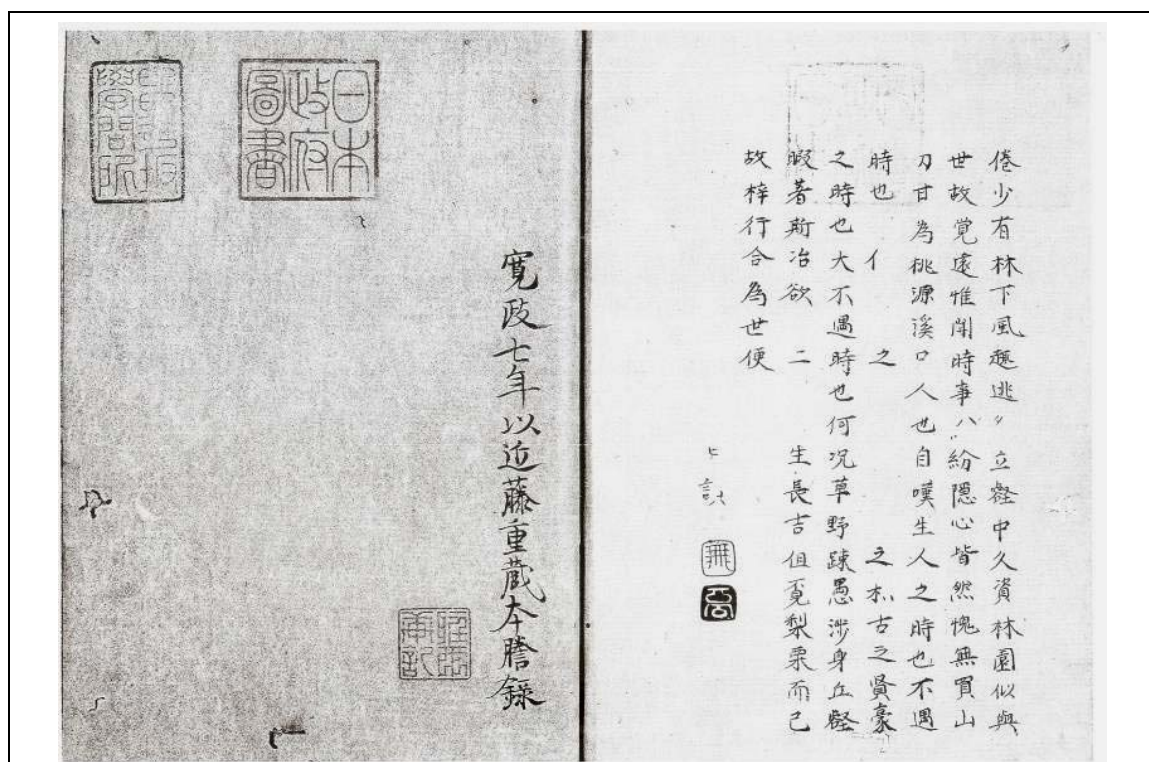 倦少有林下風趣逃〃立壑中久資林園似與
世故覚遠惟聞時事八〃紛隠心皆然愧無買山
刀甘為桃源溪口人也自嘆生人之時也不遇
時也 亻 之 之 古之賢豪
之時也大不遇時也何況草野踈愚渉身丘壑
暇著斯冶欲 二 生長吉但覓梨栗而已
故梓行合為世便
無否
寛政七年以近藤重蔵本謄録
日本政府圖書
昌平坂學問所